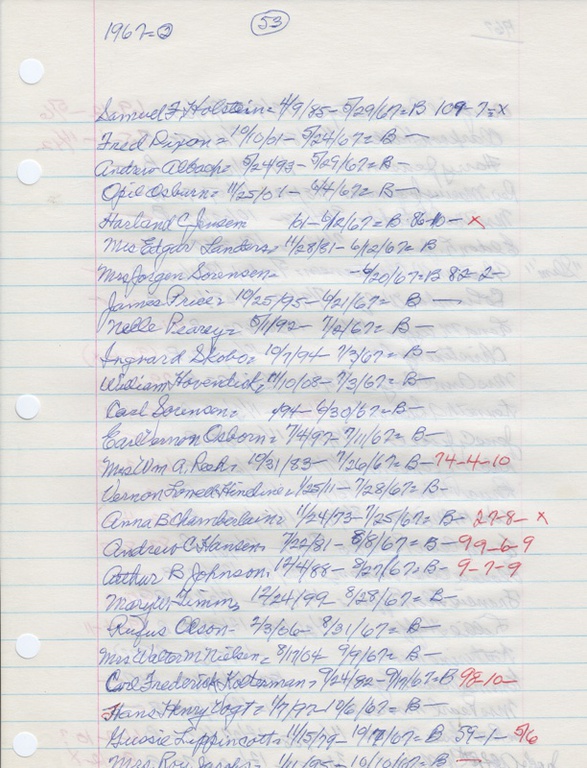 1967=② 53
Samuel F. Holstein= 4/9/85- 5/29/67=B 109-7-x
Fred Dixon= 10/10/01- 5/24/67= B-
Andrew Albach= 5/24/93- 5/29/67= B-
Opil Osburn= 11/25/01- 6/4/67= B-
Harland C Jensen 61-6/12/67= B 86-10- x
Mrs Edgar Landers= 11/28/81-6/12/67= B
Mrs Jorgen Sorensen= -6/20/67=B 82-2-
James Prisir 10/25/95- 6/21/67= B -
Nelle Pearey= 5/1/92- 7/2/67= B-
Ingvard Skobo= 10/7/94- 7/3/67= B-
William Hovendick, 11/10/08- 7/3/67= B-
Carl Sorensen= /94- 6/30/67=B-
Earl Vernon Osborn= 7/4/97- 7/11/67= B-
Mrs Wm A. 10/31/83- 7/26/67= B-74-4-10
Vernon 1/25/11- 7/28/67= B-
Anna B Chamberlain= 11/24/73-7/25/67= B- 27-8- x
Andrew C Hansen, 7/22/81- 8/8/67= B-99-6-9
Arthur B Johnson, 12/4/88- 8/27/67=B- 9-7-9
Timm, 12/24/99- 8/28/67= B-
Rufus Olson- 2/3/06- 8/31/67= B-
Mrs Walter M Nielsen, 8/17/04- 9/9/67= B-
Carl Frederick Kosterman, 9/24/82-9/17/67=B 98-10-
Hans Henry Vogt= 1/7/97-10/6/67= B-
Gussie Lippincott= 11/15/79- 10/7/67=B 59-1-5/6
Mrs Roy Jacobs= 1/11/95- 10/10/67= B -